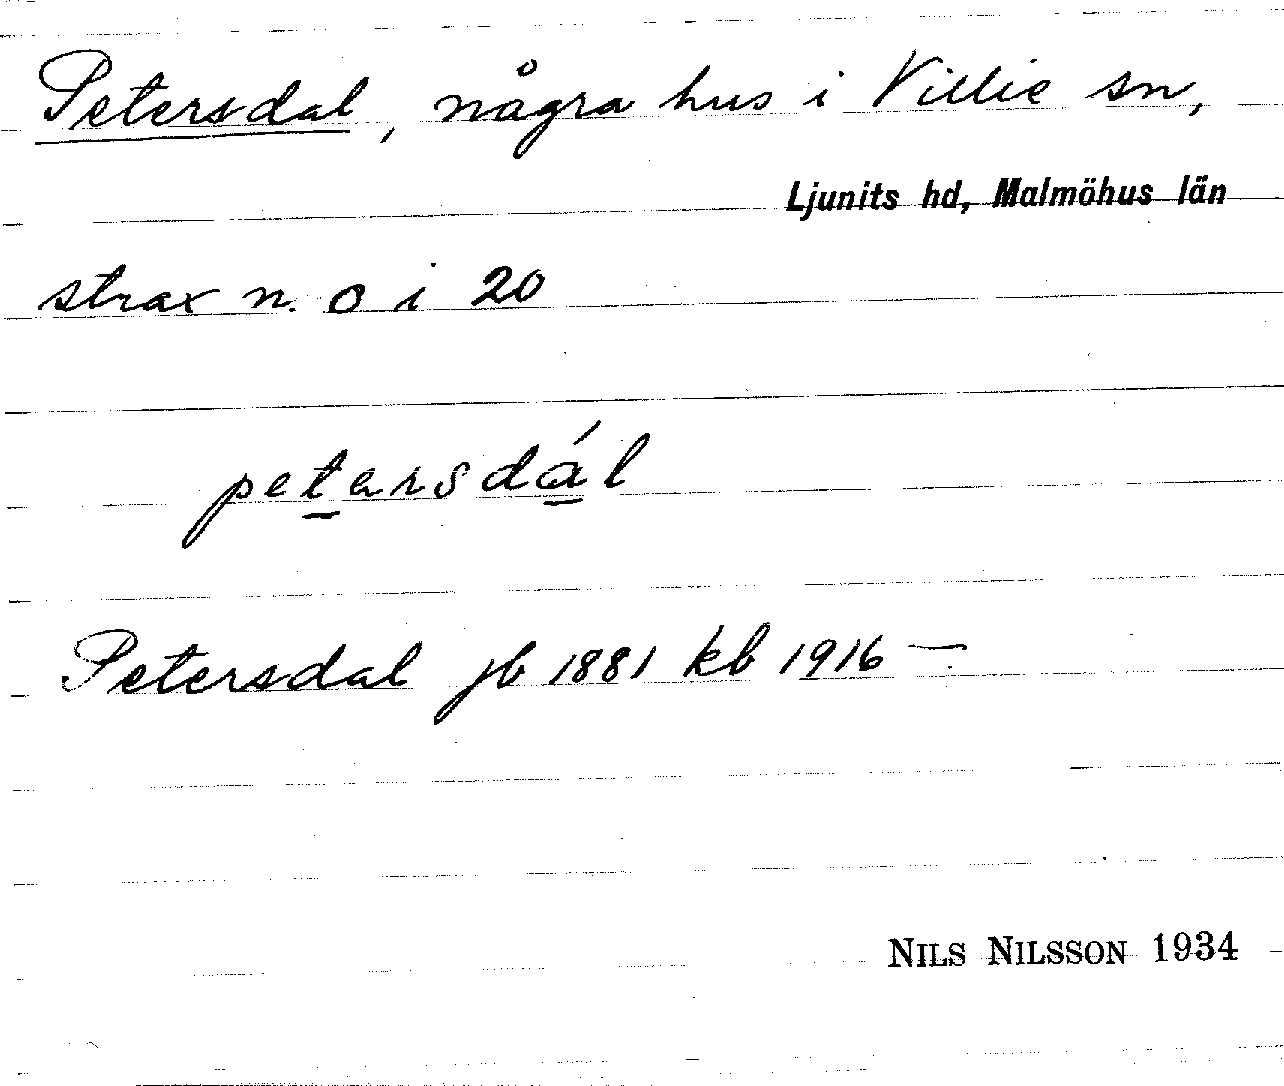 Petersdal, några hus i Villie sn,
Ljunits hd, Malmöhus län
strax n. o i 20
petersdál
Petersdal jb 1881 kb 1916 —
NILS NILSSON 1934